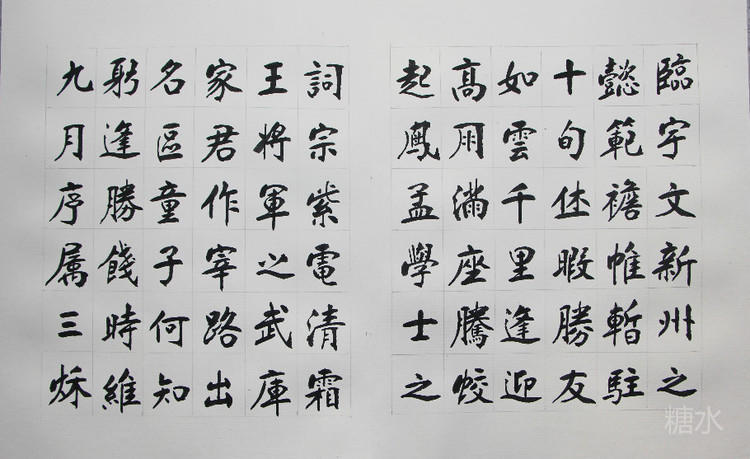 臨宇文新州之
懿範襜帷暫駐
十旬休暇勝友
如雲千里逢迎
高朋滿座騰蛟
起鳳孟學士之
詞宗紫電清霜
王將軍之武庫
家君作宰路出
名區童子何知
躬逢勝餞時維
九月序属三秋
糖水